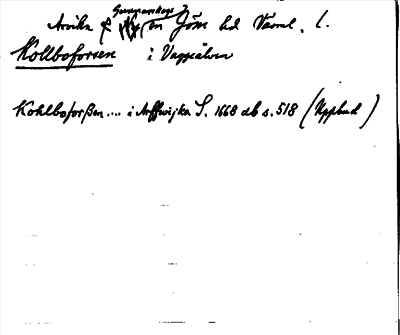 Gunnarskogs
Arvika s on Jöss hd Värml. l.
Kollboforsen i Vaggeälven
Kohlboforßen .... i Arffwijka S. 1668 db s. 518 (Uppbud)